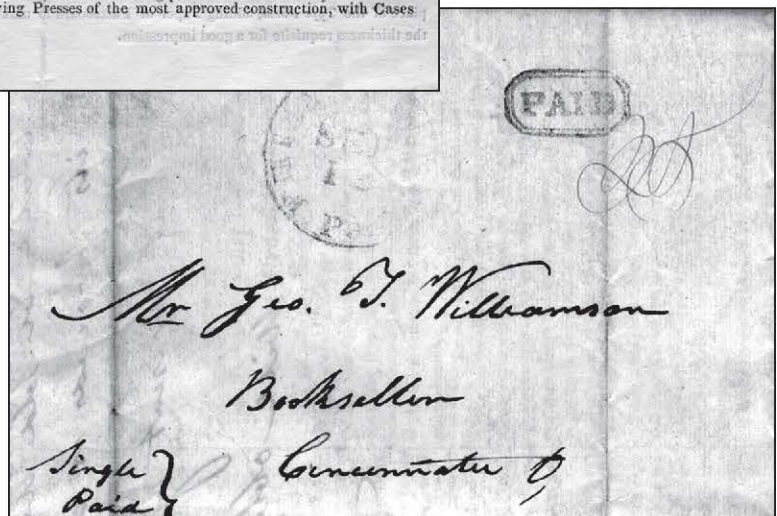 ving Presses of the most approved construction, with Cases
the thickness requisite for a good impression.
PAID
SEP
Pa
25
Mr Geo. T. Williamson
Bookseller
Cincinnati O,
Single
Paid